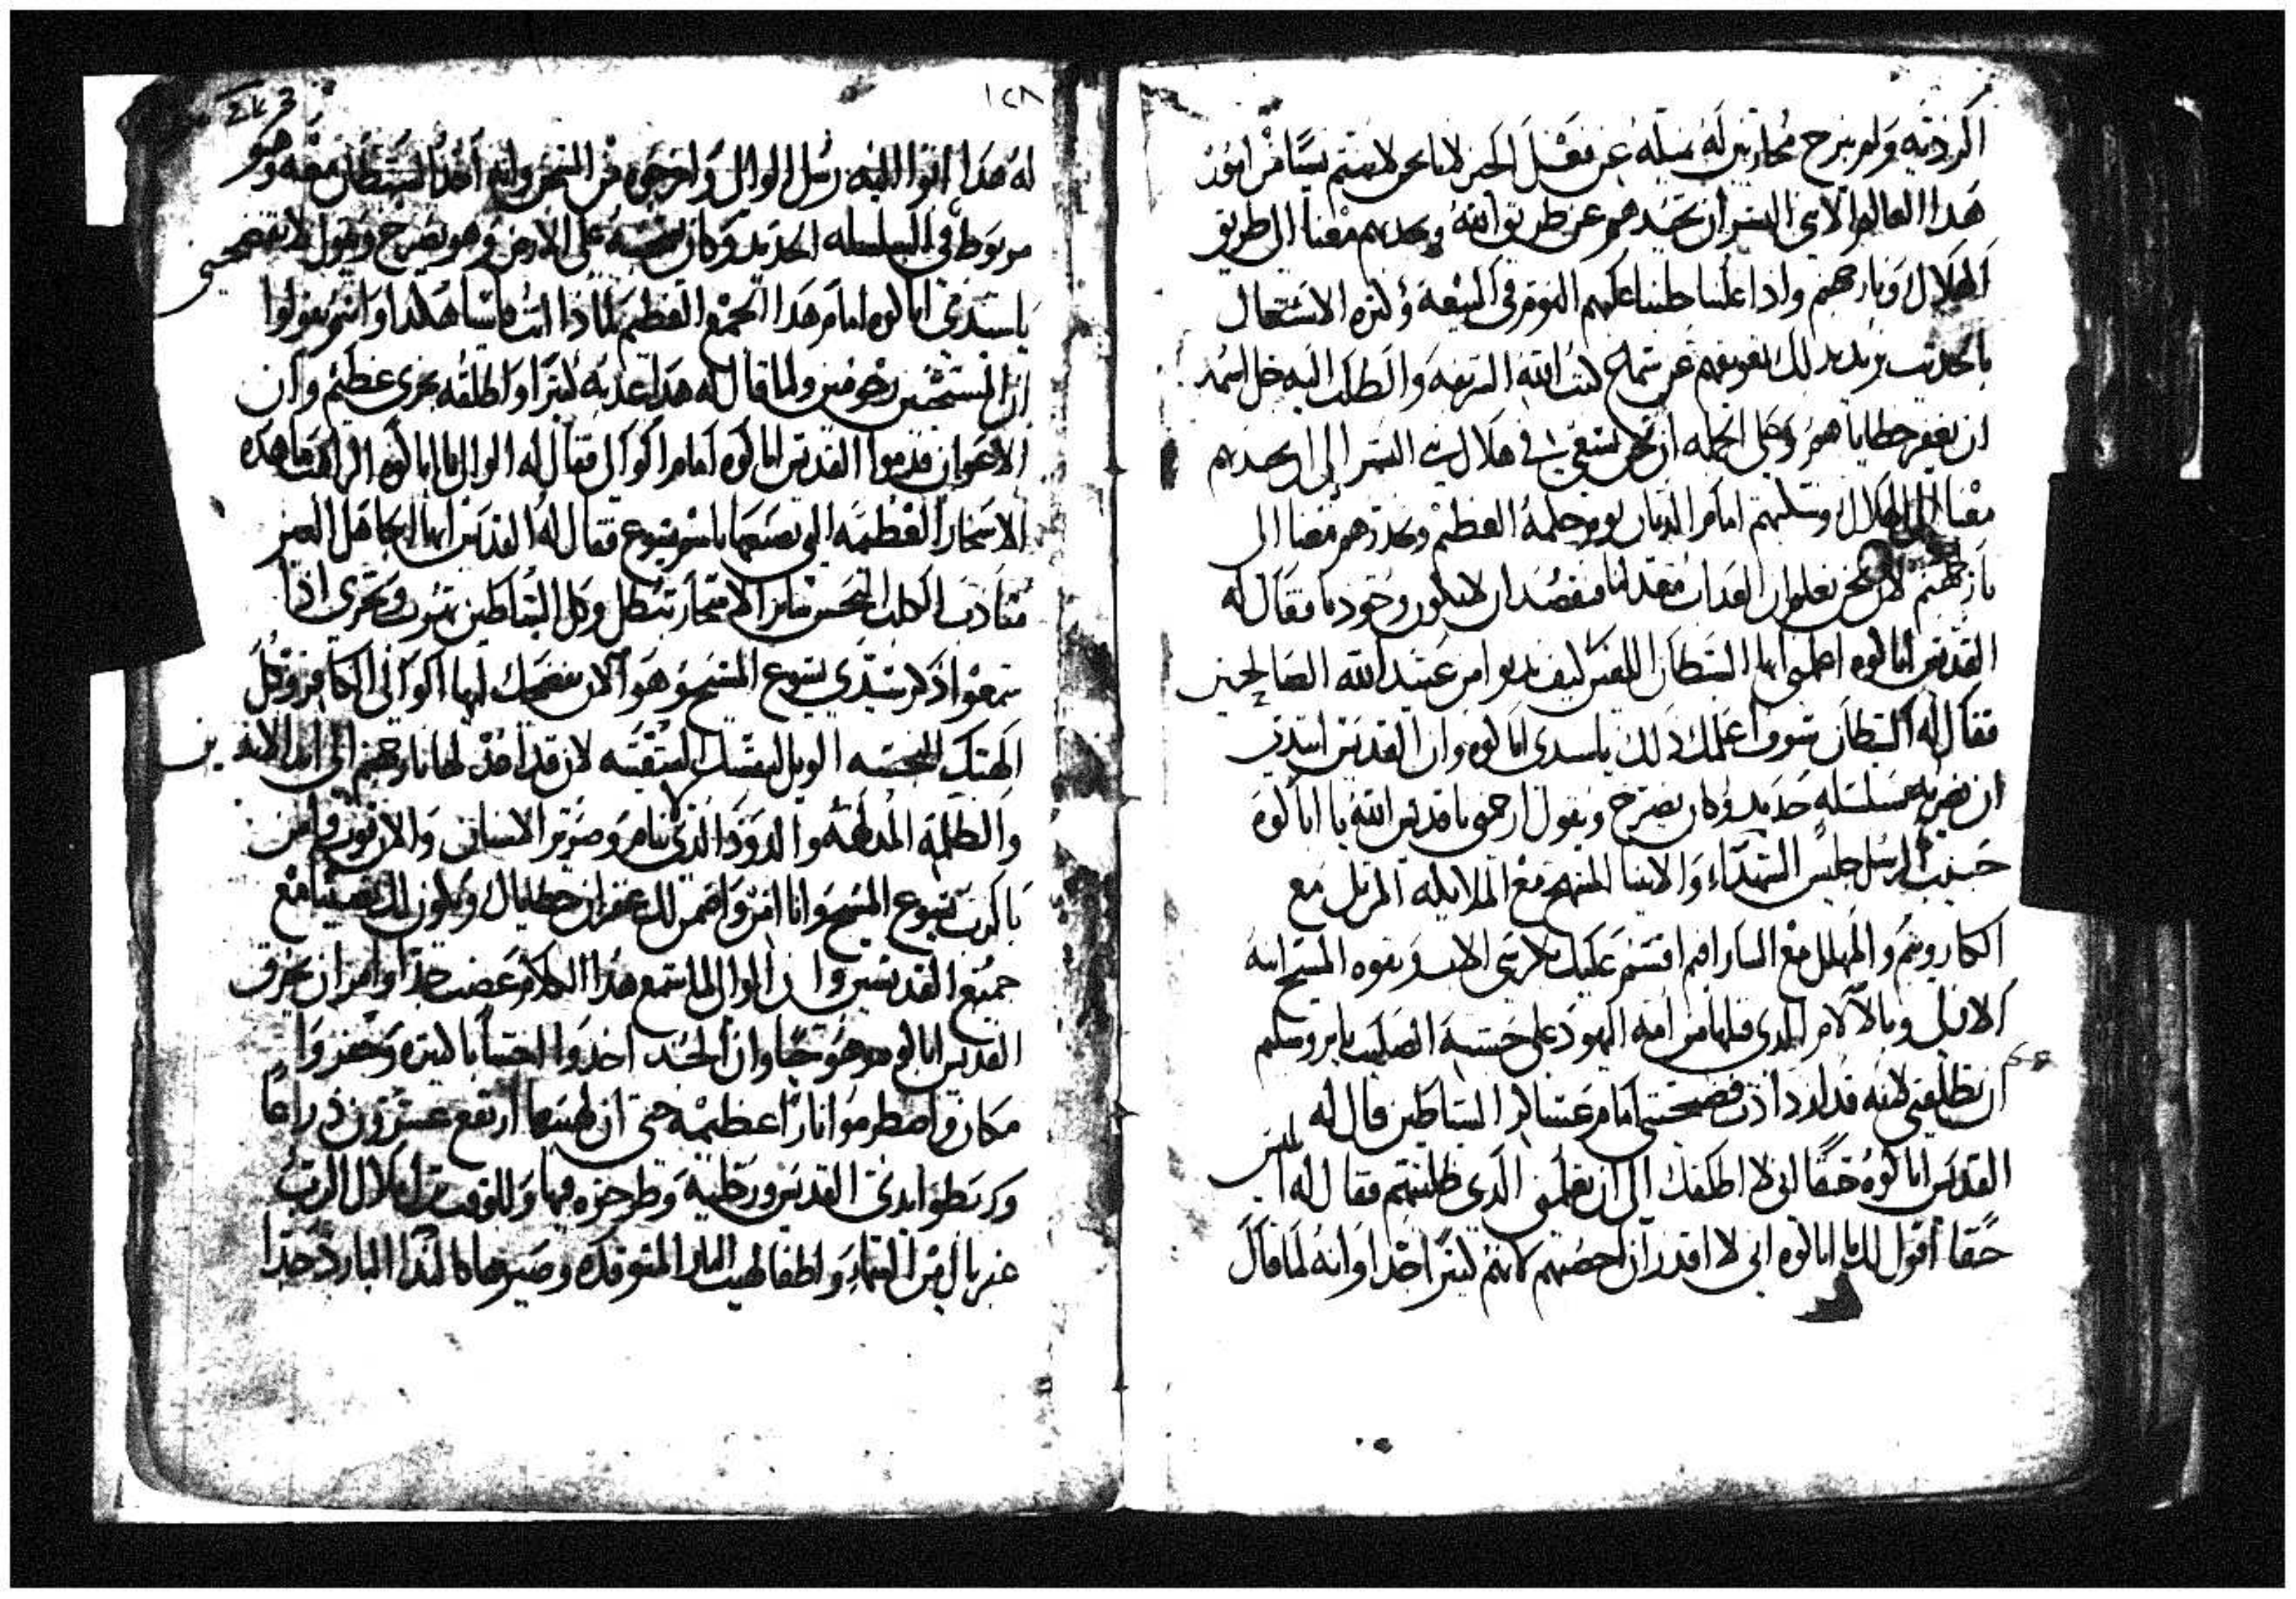 الرديه ولم نبرح محاربين له نبتله عن فعل الخير لاننا نحن لا نهتم بشيا من امور
هدا العالم الا بنى البشر ان نحيد هم عن طريق الله ونجدبهم معنا الى طريق
الهلاك ونار جهنم وادا علمنا جلبنا عليهم النوم في البيعه وكتره الاشتغال
بالحديت نريد بدلك نعوقهم عن سماع كتب الله المقدسه والطلب اليه جل اسمه
ان يغفر خطاياهم وعلى الجمله ان نحن نسعى في هلاك بنى البشر الى ان نجدبهم
معنا الى الهلاك ونسلبهم امام الديان يوم حكمه العظيم ونحدرهم معنا الى
نار جهنم لان نحن نعلم ان العداب معد لنا فنقصد ان لا نكون وحودنا فقال له
القديس اباكوه اعلمنى ايها الشيطان اللعين كيف تدنوا من عبيد الله الصالحين
فقال له الشيطان سوف اعلمك دلك ياسيدى اباكوه وان القديس ابتدى
ان يضربه بسلسله حديد وكان يصرخ ويقول ارحمنى يا قديس الله يا اباكوه
حبيب الرسل جليس الشهداء والانبيا المبتهج مع الملايكه المرتل مع
الكاروبيم والمهلل مع السارافيم اقسم عليك بكرسى الاب وبقوه المسيح ابنه
الازلى وبالالام الدى قبلها من امه اليهود على خشبة الصليب بايروشليم
ان تطلقنى لانه قد ازدادت فضيحتى امام عشاير الشياطين قال له
القديس اباكوه حقا انى لا اطلقك الى ان تعلمنى الدى ظلمتهم فقال له ابليس
حقا اقول لك يا اباكوه انى لا اقدر ان احصيهم لانهم كتير جدا وانه لما قال
١٢٨
له هدا اتوا اليه رسل الوالى واخرجوه من السجن وانه اخد الشيطان معه وهو
مربوط في السلسله الحديد وكان يسحبه على الارض وهو يصرخ ويقول لا تفضحنى
ياسيدى اباكوه امام هدا الجمع العظيم لمادا انت قاسيا هكدا وانتم تقولوا
ان المسيحيين رحومين ولما قال له هدا عدبه كتيرا واطلقه بخزى عظيم وان
الاعوان قدموا القديس اباكوه امام الوالى فقال له الوالى يا اباكوه الراهب ما هده
الاسحار العظيمه التى تصنعها باسم يسوع فقال له القديس ايها الجاهل الغير
متادب الكلب النجس ساير الاسحار تبطل وكل الشياطين تهرب وتخزى ادا
سمعوا دكر سيدى يسوع المسيح وهوا الان يفضحك ايها الوالى الكافر وكل
الهتك النجسه الويل لنفسك الشقيه لان قد اعدت لها نار جهنم الى ابد الابدين
والظلمه المدلهمه والدود الدى لا ينام وصرير الاسنان والان توب وامن
بالرب يسوع المسيح وانا امن واضمن لك غفران خطاياك ويكون لك نصيبا مع
جميع القديسين وان الوالى لما سمع هدا الكلام غضب جدا وامر ان يحرق
القديس اباكوه وهو حيا وان الجند اخدوا اخشابا كتيره وحفروا
مكان واضطرموا نارا عظيمه حتى ان لهيبها ارتفع عشرون دراعا
وربطوا ايدى القديس ورجليه وطرحوه فيها وللوقت نزل ملاك الرب
غبريال من السماء واطفا لهيب النار المتوقده وصيرها كالندا البارد جدا